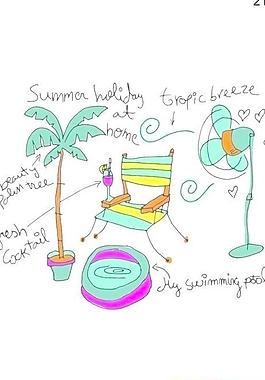 Summer holiday
at
home
tropic breeze
beauty
Palm tree
fresh
Cocktail
My swimming pool